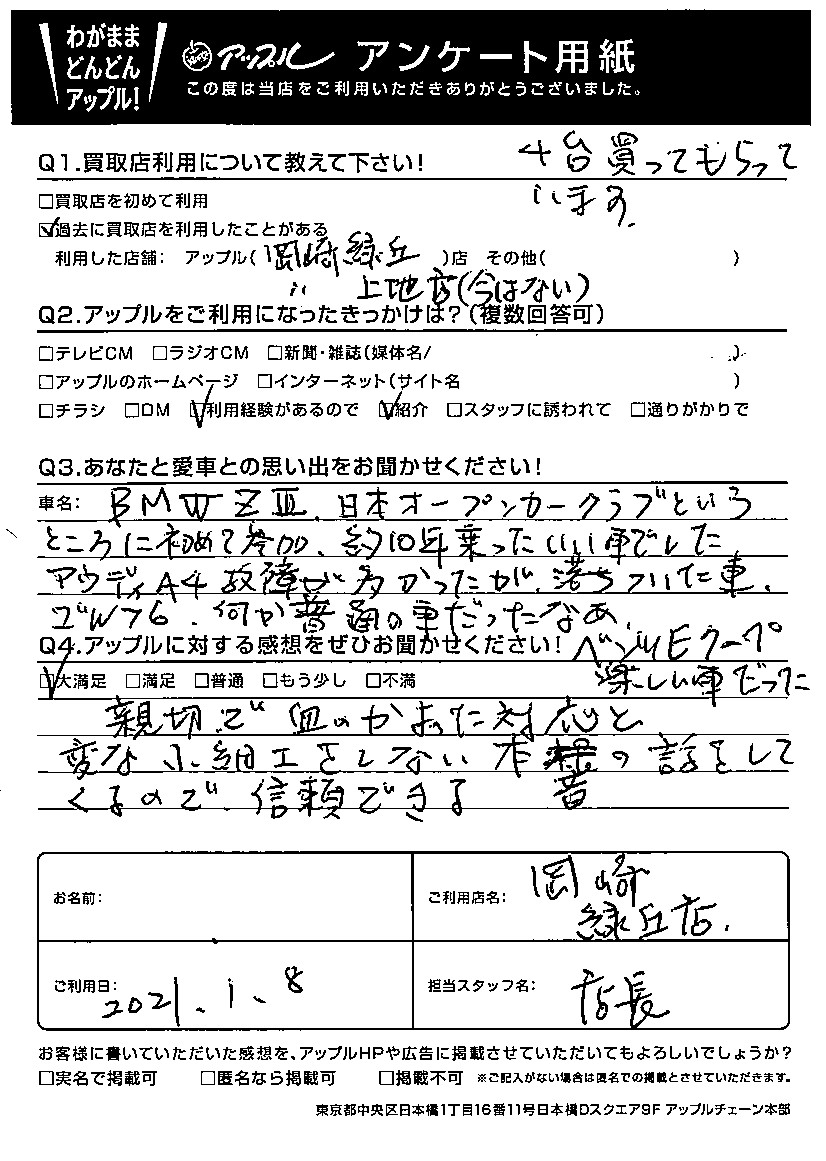 わがまま
どんどん
アップル!
アップル アンケート用紙
この度は当店をご利用いただきありがとうございました。
Q1.買取店利用について教えて下さい!
4台買ってもらって
います。
□買取店を初めて利用
☑過去に買取店を利用したことがある
利用した店舗: アップル(岡崎緑丘)店 その他( )
〃 上地店(今はない)
Q2.アップルをご利用になったきっかけは?(複数回答可)
□テレビCM □ラジオCM □新聞・雑誌(媒体名/ )
□アップルのホームページ □インターネット(サイト名 )
□チラシ □DM ☑利用経験があるので ☑紹介 □スタッフに誘われて □通りがかりで
Q3.あなたと愛車との思い出をお聞かせください!
車名: BMW ZⅢ、日本オープンカークラブという
ところに初めて参加、約10年乗ったいい車でした
アウディA4故障が多かったが、落ちついた車、
何か普通の車だったなあ、
Q4.アップルに対する感想をぜひお聞かせください!
ベンツEクーペ
楽しい車だった
☑大満足 □満足 □普通 □もう少し □不満
親切で血のかよった対応と
変な小細工をしない本音の話をして
くるので、信頼できる
お名前:
ご利用店名: 岡崎
緑丘店.
ご利用日: 2021.1.8
担当スタッフ名: 店長
お客様に書いていただいた感想を、アップルHPや広告に掲載させていただいてもよろしいでしょうか?
□実名で掲載可 □匿名なら掲載可 □掲載不可 ※ご記入がない場合は匿名での掲載とさせていただきます。
東京都中央区日本橋1丁目16番11号日本橋Dスクエア9F アップルチェーン本部